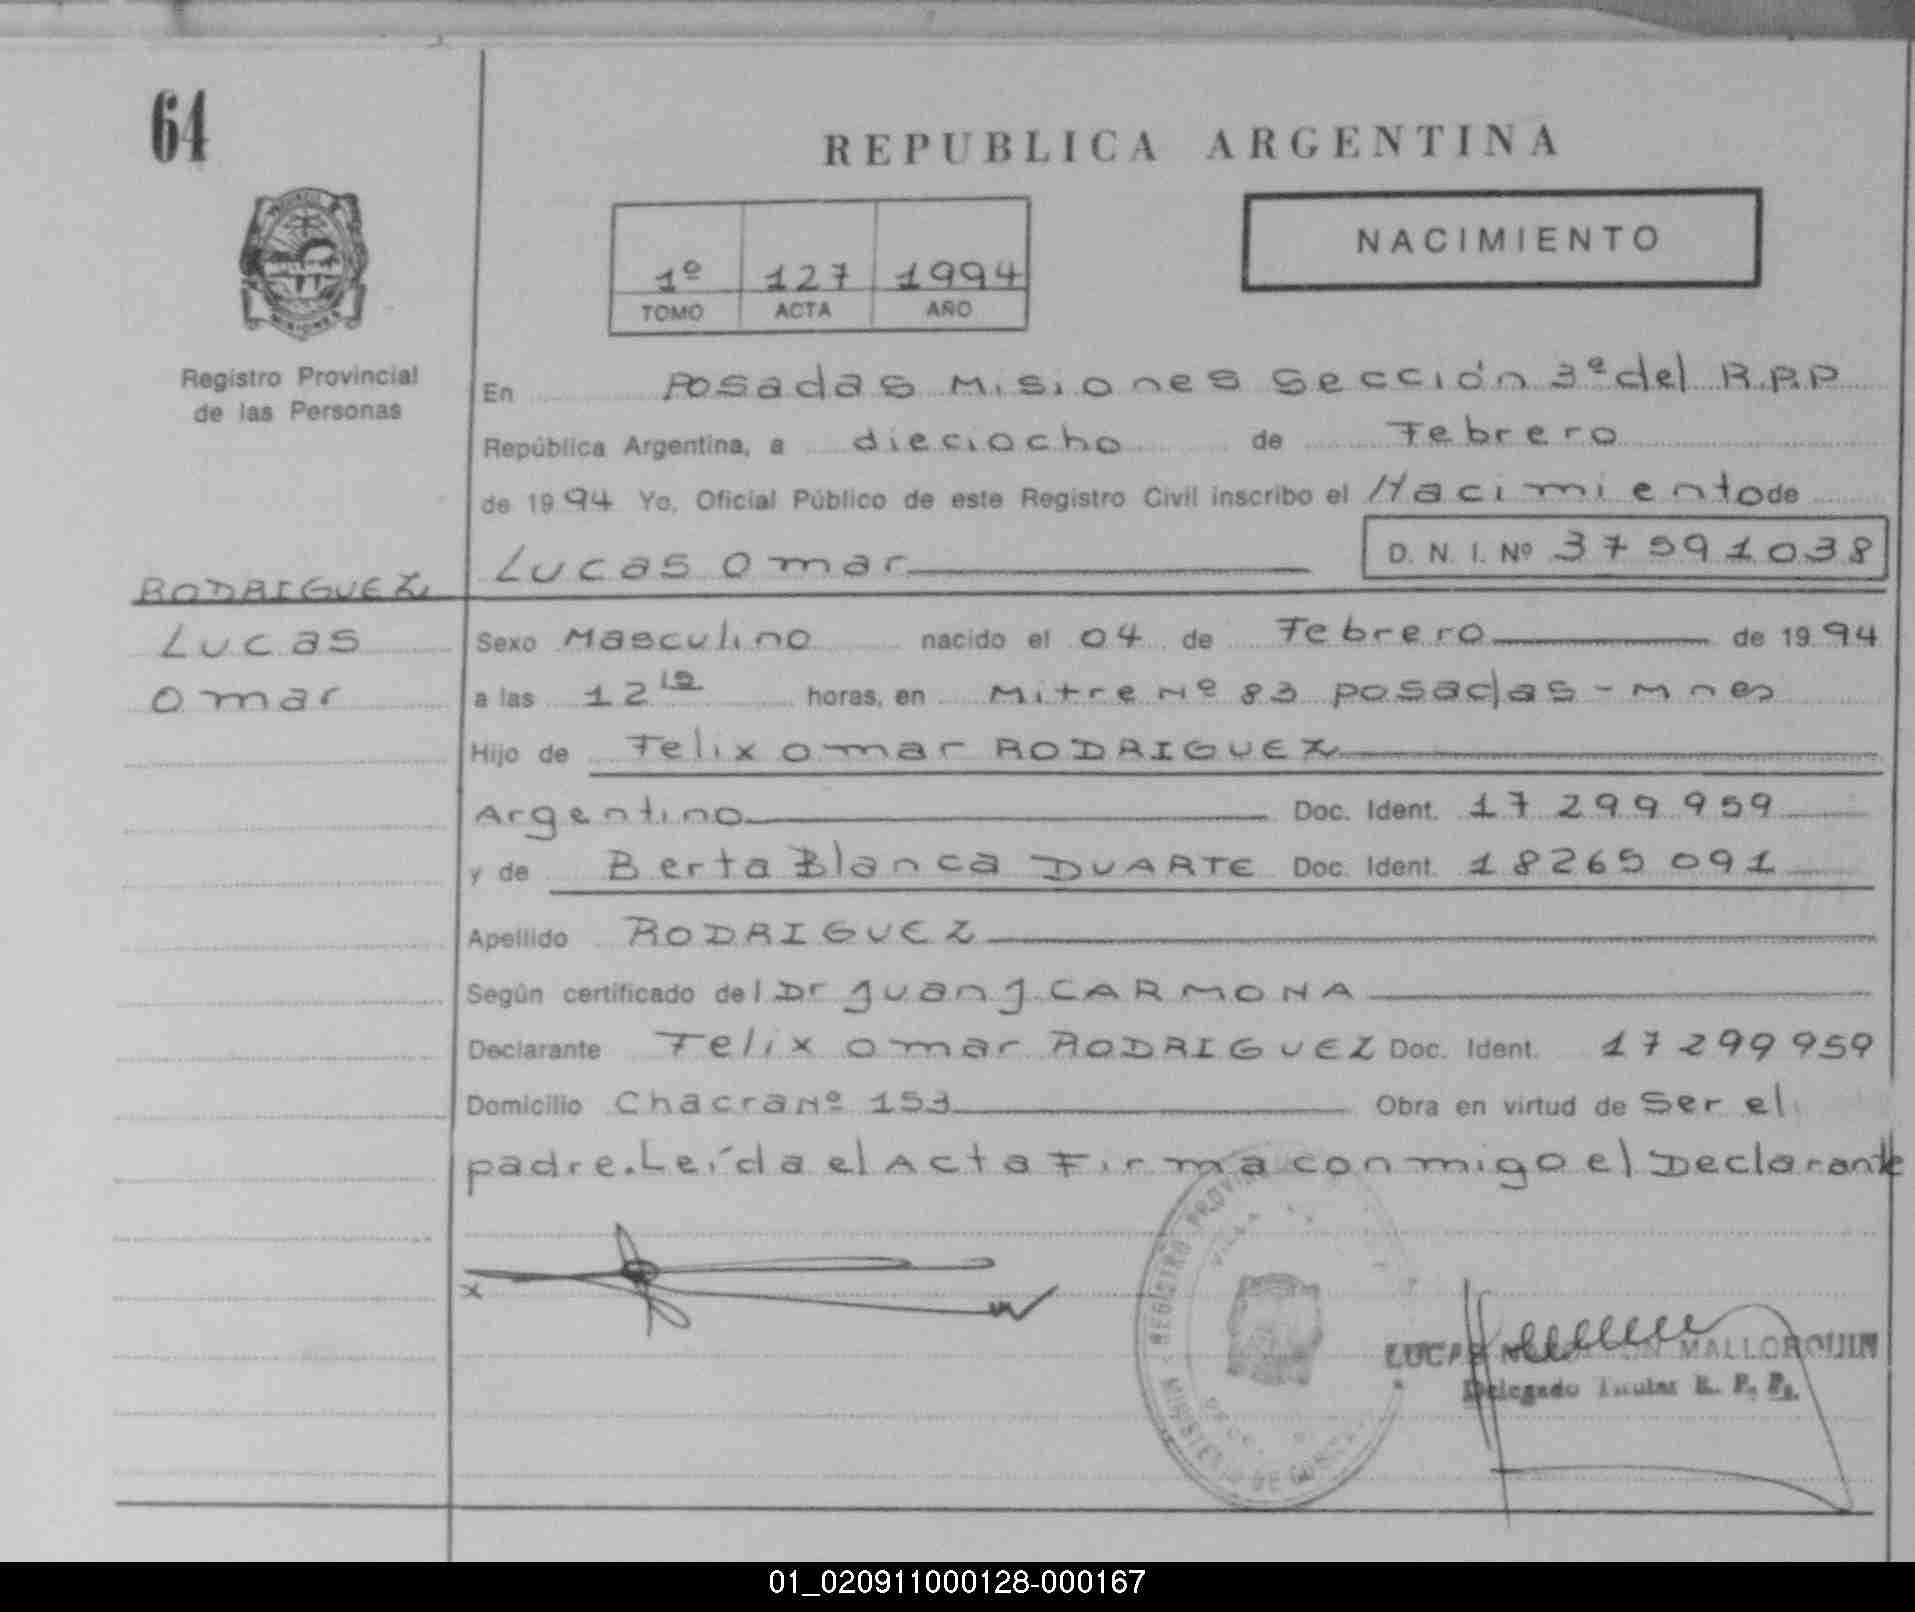 64
REPUBLICA ARGENTINA
NACIMIENTO
1º 127 1994
TOMO ACTA AÑO
Registro Provincial
de las Personas
En Posadas Misiones Sección 3ª del R.P.P
República Argentina, a dieciocho de Febrero
de 1994 Yo, Oficial Público de este Registro Civil inscribo el Nacimiento de
Lucas Omar D. N. I. Nº 37591038
RODRIGUEZ
Lucas
Omar
Sexo Masculino nacido el 04 de Febrero de 1994
a las 12 horas, en Mitre Nº 83 Posadas - Mnes
Hijo de Felix Omar RODRIGUEZ
Argentino Doc. Ident. 17 299 959
y de Berta Blanca DUARTE Doc. Ident. 18265 091
Apellido RODRIGUEZ
Según certificado del Dr Juan J. CARMONA
Declarante Felix Omar RODRIGUEZ Doc. Ident. 17 299 959
Domicilio Chacra Nº 153 Obra en virtud de Ser el
padre. Leída el Acta Firma conmigo el Declarante
REGISTRO PROVIN
VILLA
MINISTERIO DE
LUCAS MALLORQUIN
Delegado Titular R. P. P.
01_020911000128-000167